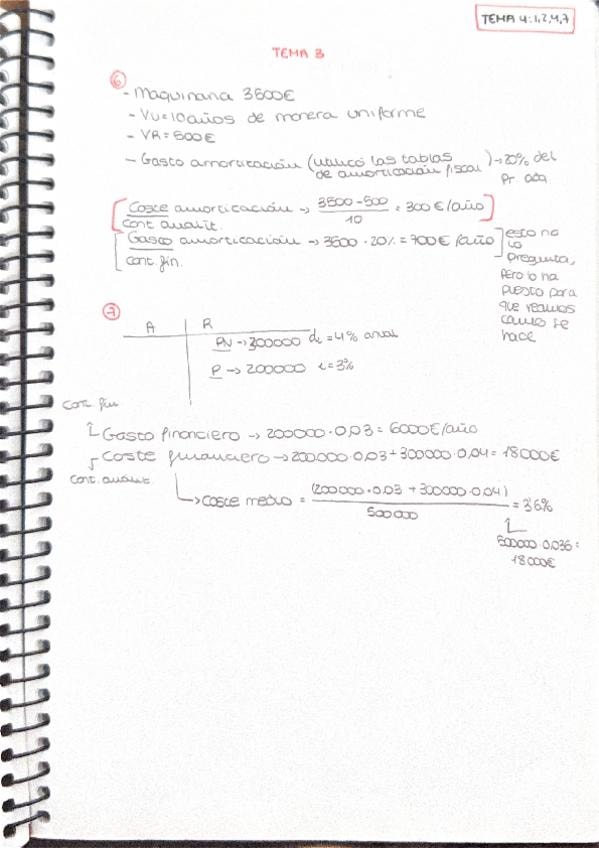 TEMA 4: 1, 2, 4, 7
TEMA 3
⑥
- Maquinaria 3500€
- VU = 10 años de manera uniforme
- VR = 500€
- Gasto amortización (utilizó las tablas de amortización fiscal) → 20% del Pr adq
Coste amortización → 3500 - 500 / 10 = 300 €/año
cont. analít.
Gasto amortización → 3500 · 20% = 700€/año
cont. fin.
esto no
lo
pregunta,
pero lo ha
puesto para
que veamos
como se
hace
⑦
A | R
PN → 300000 di = 4% anual
P → 200000 i = 3%
cont. fin
Gasto financiero → 200000 · 0,03 = 6000€/año
Coste financiero → 200000 · 0,03 + 300000 · 0,04 = 18000€
cont. analít.
coste medio = (200000 · 0,03 + 300000 · 0,04) / 500000 = 3'6%
500000 · 0,036 =
18000€